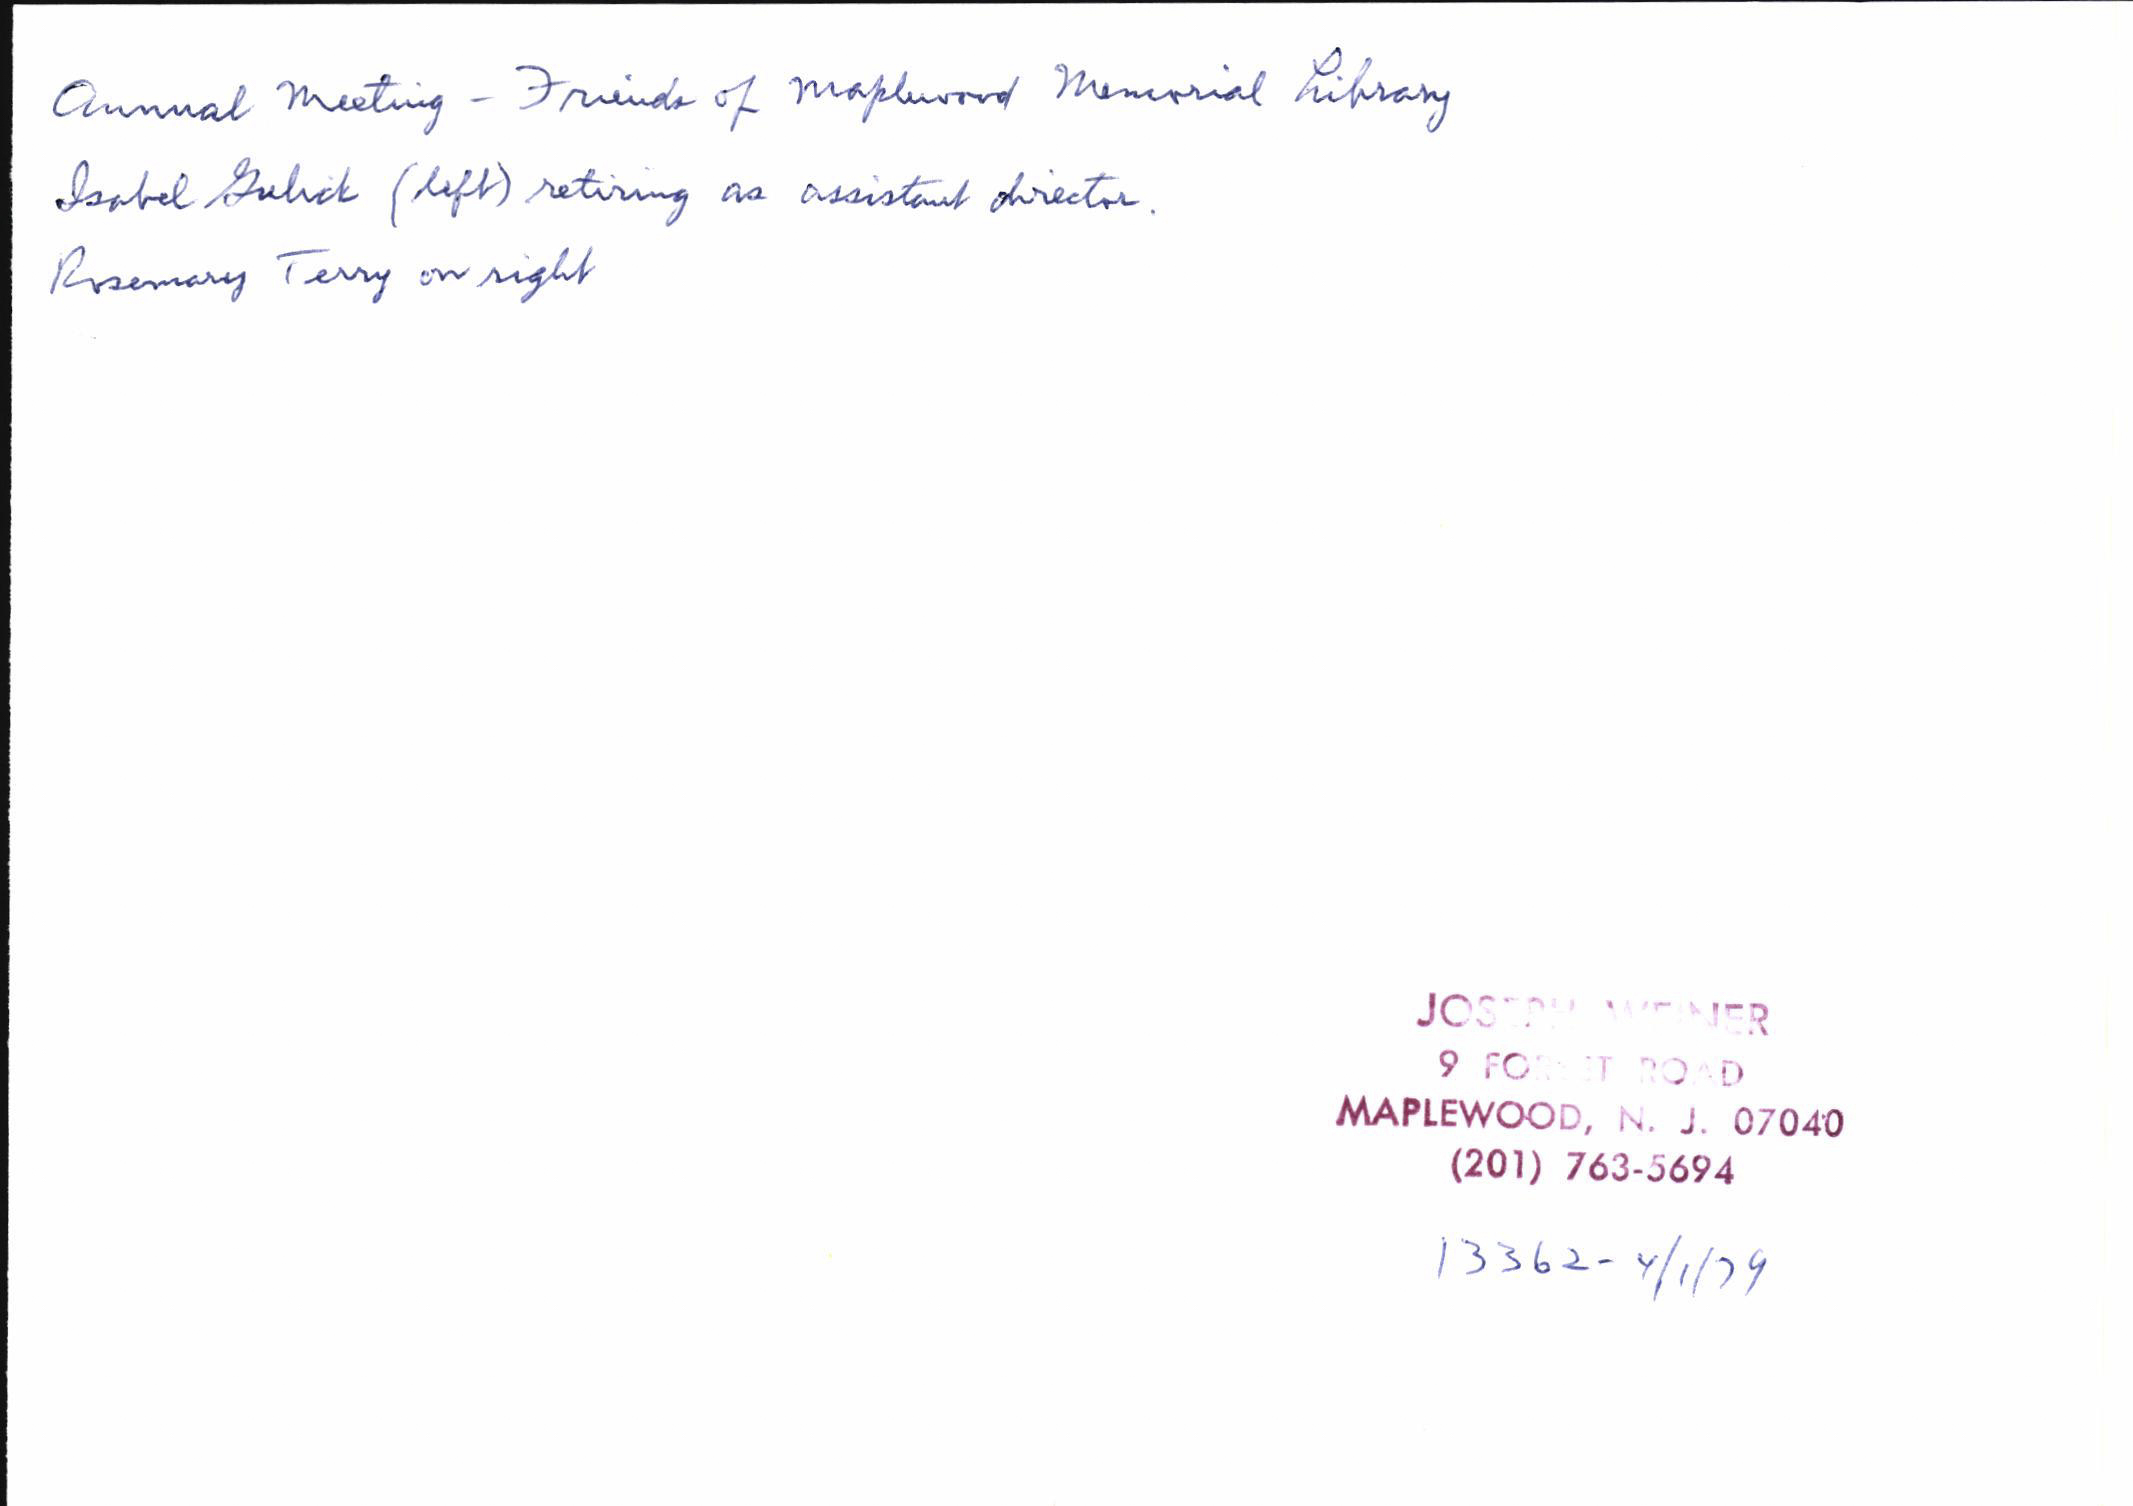 Annual Meeting - Friends of Maplewood Memorial Library
Isabel Gulick (left) retiring as assistant director.
Rosemary Terry on right
JOSEPH WEINER
9 FOREST ROAD
MAPLEWOOD, N. J. 07040
(201) 763-5694
13362- 4/1/79